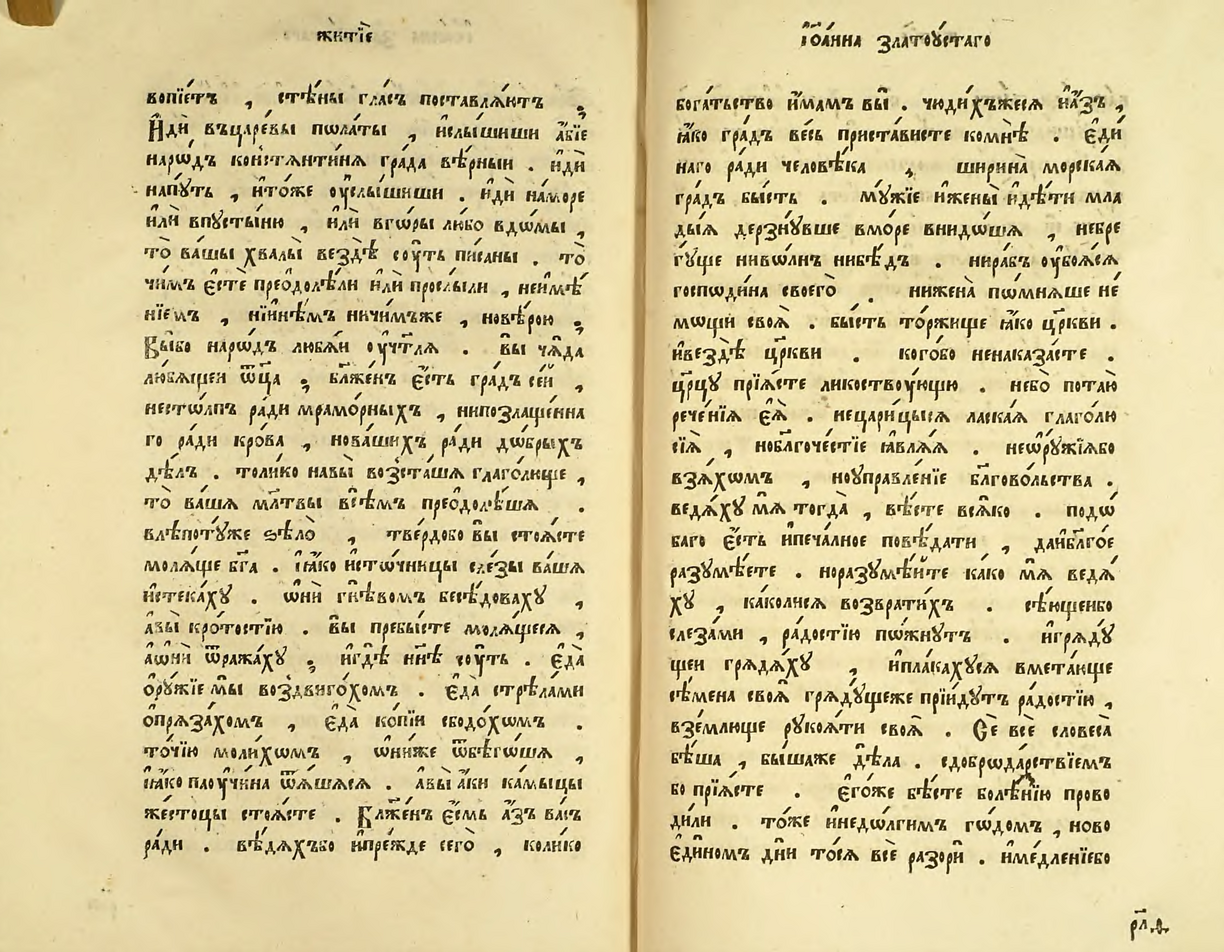 житїе
вопїетъ , стѣны гласъ поставлѧютъ ,
Иди въцаревы пѡлаты , ислышиши абїе
народъ констѧнтинѧ града вѣрныи . иди
напꙋть , итоже оуслышиши . иди наморе
или впꙋстыню , или вгѡры любо вдѡмы ,
то вашы хвалы вездѣ соуть писаны . то
чимъ есте преодолѣли или прослыли , неимѣ
нїемъ , нїинѣмъ ничимъже , новѣрою ,
Выбо народъ любѧи оучт҃лѧ . вы чѧда
любѧщеи ѿц҃а , бл҃женъ есть градъ сеи ,
нестѡлпъ ради мраморныхъ , нипозлащенна
го ради крова , новашихъ ради дѡбрыхъ
дѣлъ . толико навы возсташѧ глаголюще ,
то вашѧ мл҃твы всѣмъ преодолѣшѧ .
влѣпотꙋже ѕѣло , твердобо вы стоѧсте
молѧще бг҃а . іꙗко истѡчницы слезы вашѧ
истекахꙋ . ѡни гнѣвомъ бесѣдовахꙋ ,
авы кротостїю . вы пребысте молѧщесѧ ,
аѡни ѿражахꙋ , игдѣ нн҃ѣ соуть . еда
орꙋжїе мы воздвигохомъ . еда стрѣлами
опрѧзахомъ , еда копїи сбодохѡмъ .
точїю молихѡмъ , ѡниже ѿбѣгѡшѧ ,
іꙗко паоучина ѿѧшѧсѧ . авы аки камыцы
жестоцы стоѧсте . Бл҃женъ есмь азъ васъ
ради . вѣдѧхъбо ипрежде сего , колико
іѡанна златоꙋстаго
богатьство имамъ вы . чюдихъжесѧ иазъ ,
ꙗко градъ весь пристависте комнѣ . еди
наго ради человѣка , ширина морскаѧ
градъ бысть . мꙋжїе ижены идѣти мла
дыѧ дерзнꙋвше вморе внидѡшѧ , небре
гꙋще нивѡлнъ нибѣдъ . нирабъ оубоѧсѧ
господина своего . нижена пѡмнѧше не
мѡщи своѧ . бысть торжище ꙗко цр҃кви .
ивездѣ цр҃кви . когобо ненаказасте .
цр҃цꙋ прїѧсте ликоствоующю . небо потаю
реченїѧ еѧ . нецарицысѧ ласкаѧ глаголю
сїѧ , ноблагочестїе ꙗвлѧѧ . неѡрꙋжїѧбо
взѧхѡмъ , ноуправленїе бл҃говольства .
ведѧхꙋ мѧ тогда , вѣсте всѧко . подѡ
баго есть ипечалное повѣдати , даибл҃гое
разꙋмѣете . норазꙋмѣите како мѧ ведѧ
хꙋ , каколисѧ возвратихъ . сѣющеибо
слезами , радостїю пѡжнꙋтъ . игрѧдꙋ
щеи грѧдѧхꙋ , иплакахꙋсѧ вметающе
сѣмена своѧ грѧдꙋщеже прїидꙋтъ радостїю ,
вземлюще рꙋкоѧти своѧ . Се все словеса
бѣша , бышаже дѣла . сдобрѡдарствїемъ
бо прїѧсте . егоже бѣсте болѣнїю прово
дили . тоже инедѡлгимъ гѡдомъ , ново
единомъ дн҃и тосѧ все разори . имедленїебо
рл҃.ѳ.